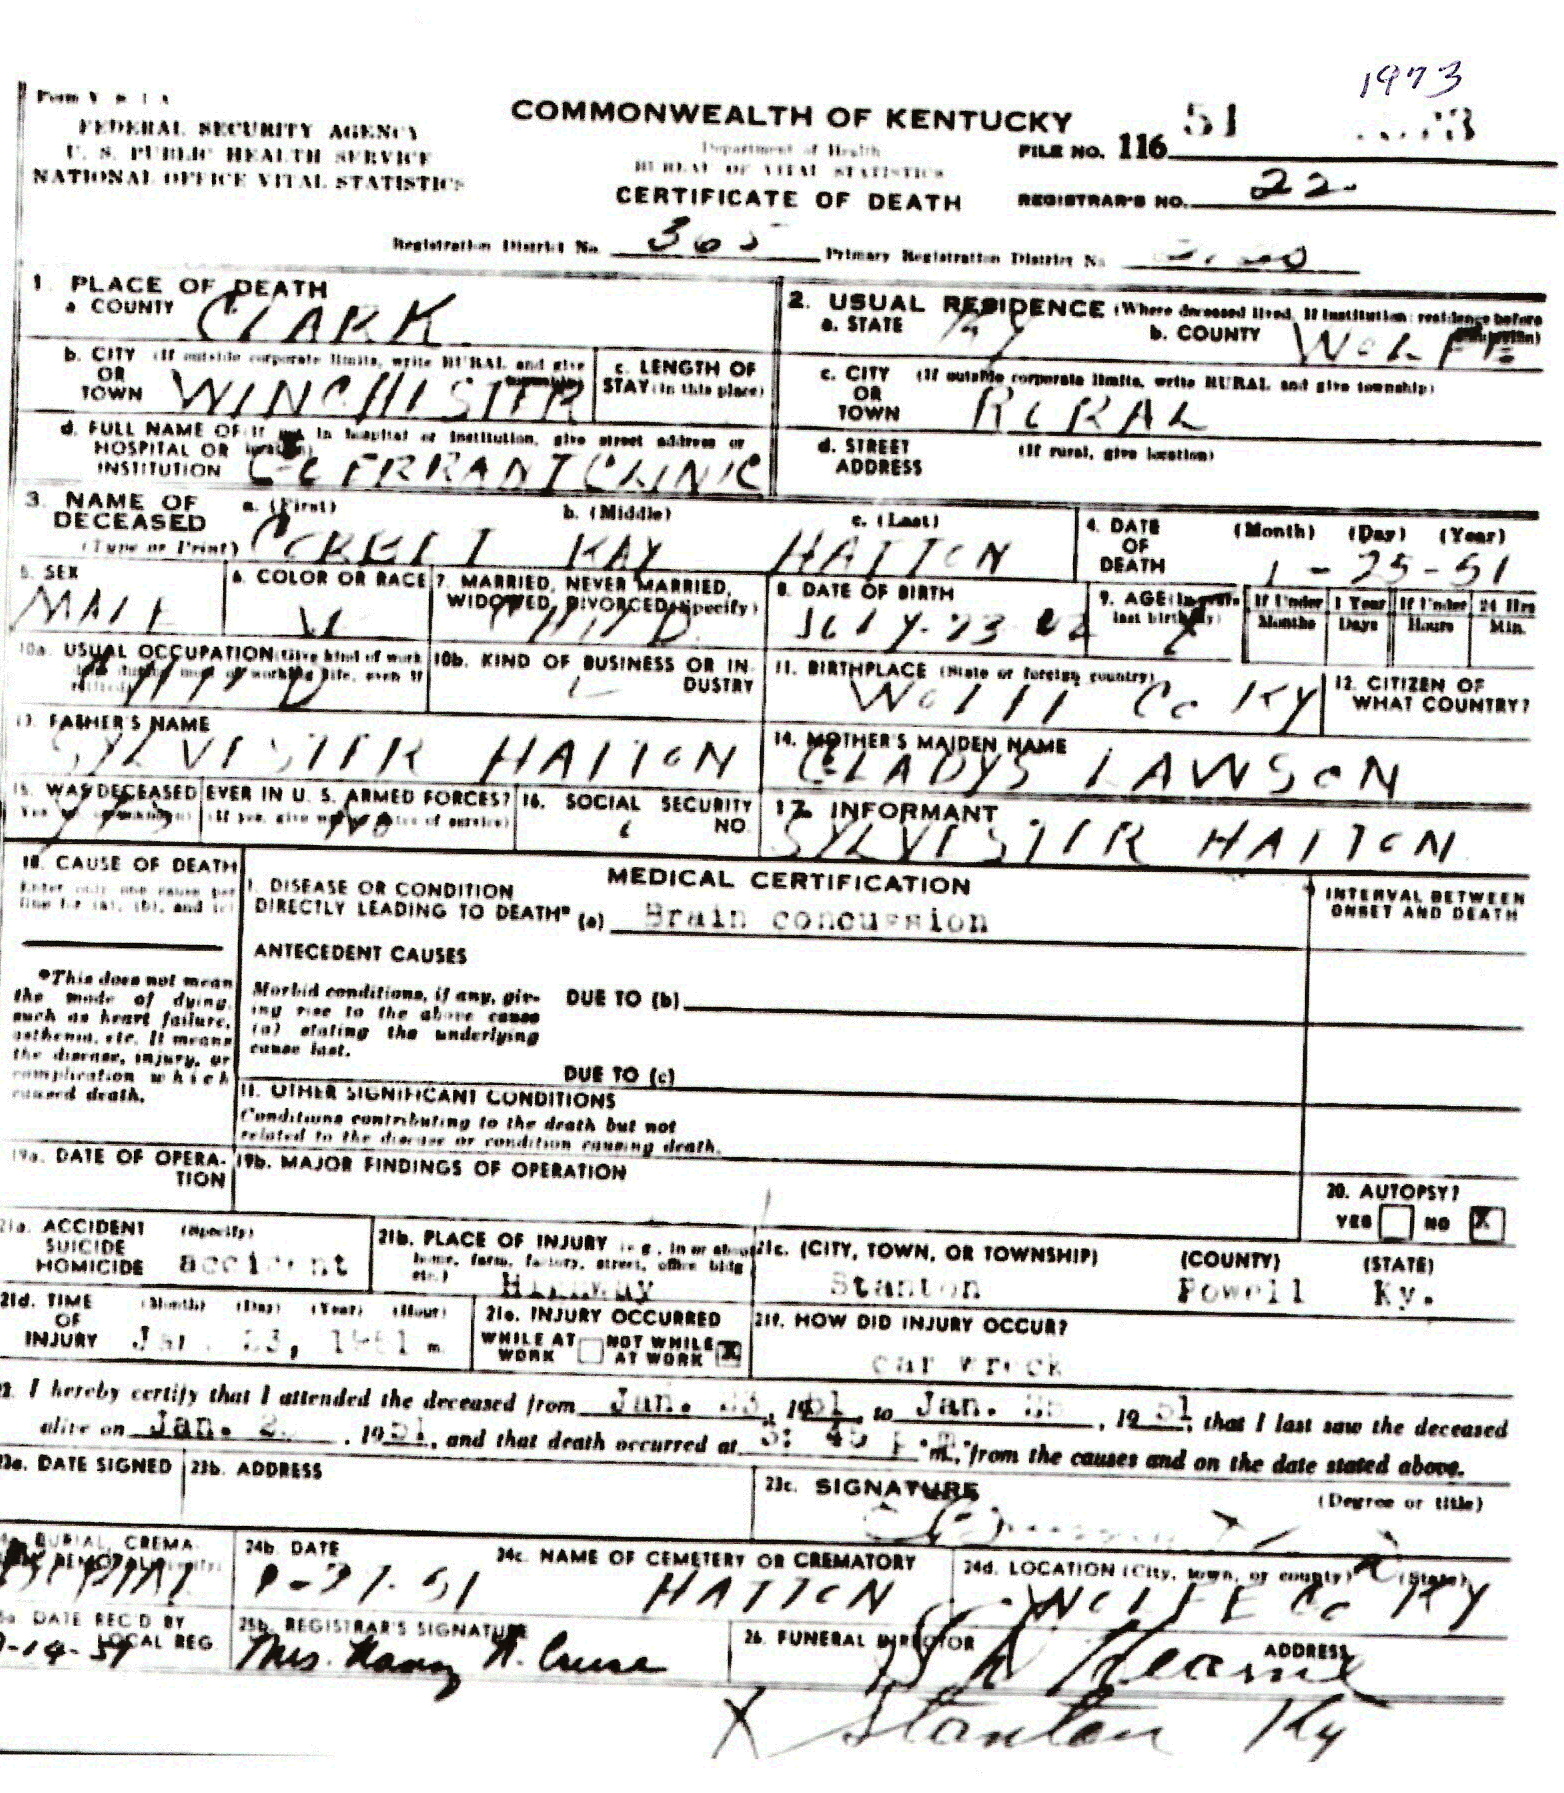 1973
Form V. S. 1 A
FEDERAL SECURITY AGENCY
U. S. PUBLIC HEALTH SERVICE
NATIONAL OFFICE VITAL STATISTICS
COMMONWEALTH OF KENTUCKY
Department of Health
BUREAU OF VITAL STATISTICS
CERTIFICATE OF DEATH
FILE NO. 116 51
REGISTRAR'S NO. 22
Registration District No. 365 Primary Registration District No.
1. PLACE OF DEATH
a. COUNTY CLARK
b. CITY (If outside corporate limits, write RURAL and give
OR
TOWN WINCHESTER
c. LENGTH OF
STAY (in this place)
d. FULL NAME OF (If not in hospital or institution, give street address or
HOSPITAL OR location)
INSTITUTION CLINIC
2. USUAL RESIDENCE (Where deceased lived. If institution: residence before
a. STATE KY b. COUNTY WOLFE
c. CITY (If outside corporate limits, write RURAL and give township)
OR
TOWN RURAL
d. STREET (If rural, give location)
ADDRESS
3. NAME OF a. (First) b. (Middle) c. (Last)
DECEASED
(Type or Print) RAY HATTON
4. DATE (Month) (Day) (Year)
OF
DEATH 1-25-51
5. SEX
MALE
6. COLOR OR RACE
W
7. MARRIED, NEVER MARRIED,
WIDOWED, DIVORCED (Specify)
CHILD
8. DATE OF BIRTH
JULY-23
9. AGE (In years
last birthday)
If Under 1 Year If Under 24 Hrs
Months Days Hours Min.
10a. USUAL OCCUPATION (Give kind of work
done during most of working life, even if
retired)
CHILD
10b. KIND OF BUSINESS OR IN-
DUSTRY
11. BIRTHPLACE (State or foreign country)
WOLFE Co KY
12. CITIZEN OF
WHAT COUNTRY?
13. FATHER'S NAME
SYLVESTER HATTON
14. MOTHER'S MAIDEN NAME
GLADYS LAWSON
15. WAS DECEASED EVER IN U. S. ARMED FORCES?
(If yes, give war or dates of service)
NO
16. SOCIAL SECURITY
NO.
17. INFORMANT
SYLVESTER HATTON
18. CAUSE OF DEATH
Enter only one cause per
line for (a), (b), and (c)
*This does not mean
the mode of dying,
such as heart failure,
asthenia, etc. It means
the disease, injury, or
complication which
caused death.
MEDICAL CERTIFICATION
I. DISEASE OR CONDITION
DIRECTLY LEADING TO DEATH* (a) Brain concussion
ANTECEDENT CAUSES
Morbid conditions, if any, giv-
ing rise to the above cause
(a) stating the underlying
cause last.
DUE TO (b)
DUE TO (c)
II. OTHER SIGNIFICANT CONDITIONS
Conditions contributing to the death but not
related to the disease or condition causing death.
INTERVAL BETWEEN
ONSET AND DEATH
19a. DATE OF OPERA-
TION
19b. MAJOR FINDINGS OF OPERATION
20. AUTOPSY?
YES NO X
21a. ACCIDENT (Specify)
SUICIDE
HOMICIDE accident
21b. PLACE OF INJURY (e.g., in or about
home, farm, factory, street, office bldg
etc.) Highway
21c. (CITY, TOWN, OR TOWNSHIP) (COUNTY) (STATE)
Stanton Powell Ky.
21d. TIME (Month) (Day) (Year) (Hour)
OF
INJURY Jan. 23, 1951 m.
21e. INJURY OCCURRED
WHILE AT WORK NOT WHILE AT WORK X
21f. HOW DID INJURY OCCUR?
car wreck
22. I hereby certify that I attended the deceased from Jan. 23, 1951 to Jan. 25, 1951, that I last saw the deceased
alive on Jan. , 1951, and that death occurred at 45 p m., from the causes and on the date stated above.
23a. DATE SIGNED 23b. ADDRESS
23c. SIGNATURE (Degree or title)
24a. BURIAL, CREMA-
REMOVAL (Specify)
BURIAL
24b. DATE
24c. NAME OF CEMETERY OR CREMATORY
HATTON
24d. LOCATION (City, town, or county) (State)
WOLFE Co KY
25a. DATE REC'D BY
LOCAL REG.
25b. REGISTRAR'S SIGNATURE
Mrs.
26. FUNERAL DIRECTOR ADDRESS
Hearne
X Stanton Ky